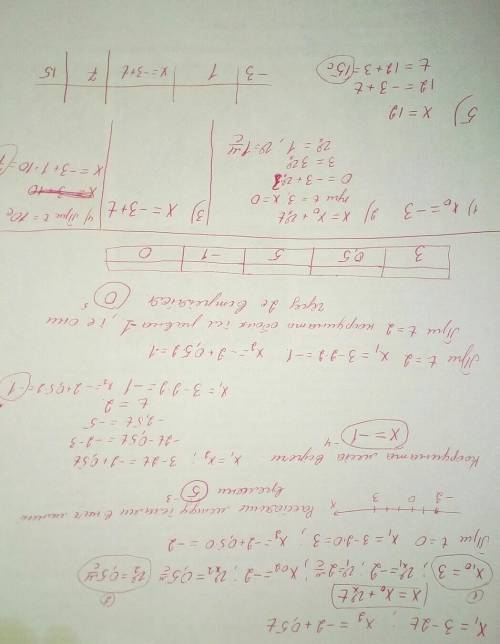 x₁ = 3 - 2t ; x₂ = -2 + 0,5t
x = x₀ + υₓt
x₁₀ = 3 ; υ₁ = -2 ; x₀₂ = -2 ; υₓ₂ = 0,5 м/с
При t = 0 x₁ = 3 - 2·0 = 3 ; x₂ = -2 + 0,5·0 = -2
-2 0 3 x
Расстояние между телами в нач. момент
времени 5
Координата места встречи x₁ = x₂ ; 3 - 2t = -2 + 0,5t
x = -1
-2t - 0,5t = -2 - 3
-2,5t = -5
t = 2
x₁ = 3 - 2·2 = -1 x₂ = -2 + 0,5·2 = -1
При t = 2 x₁ = 3 - 2·2 = -1 x₂ = -2 + 0,5·2 = -1
При t = 2 координата обоих тел равна -1, т.е они
через 2с встретятся 0
3 0,5 5 -1 0
1) x₀ = -3
2) x = x₀ + υₓt
при t = 3, x = 0
0 = -3 + υₓ3
3 = 3υₓ
υₓ = 1, υ = 1 м/с
3) x = -3 + t
4) При t = 10с
x = -3 + 1·10 =
5) x = 12
12 = -3 + t
t = 12 + 3 = 15с
-3 1 x = -3 + t 7 15